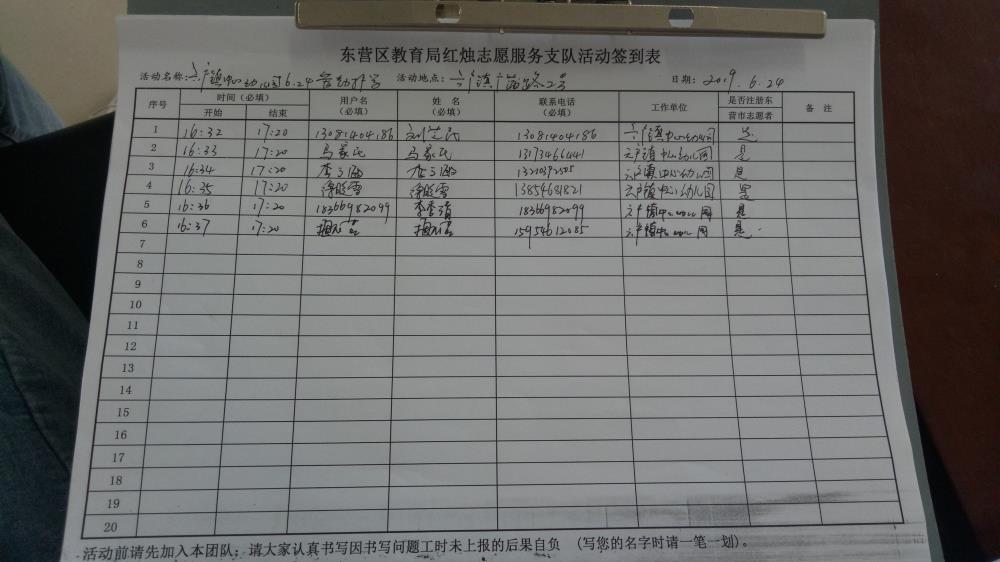 东营区教育局红烛志愿服务支队活动签到表
活动名称: 镇中心幼儿园6.24 活动地点: 六户镇广 路2号 日期: 2019.6.24
序号 时间（必填） 用户名（必填） 姓 名（必填） 联系电话（必填） 工作单位 是否注册东营市志愿者 备 注
开始 结束
1 16:32 17:20 13081404186 13081404186 六户镇中心幼儿园 是
2 16:33 17:20 马 马 13173466441 六户镇中心幼儿园 是
3 16:34 17:20 李 李 六户镇中心幼儿园 是
4 16:35 17:20 13854681821 六户镇中心幼儿园 是
5 16:36 17:20 18366982099 李 18366982099 六户镇中心幼儿园 是
6 16:37 17:20 15954612085 六户镇中心幼儿园 是
7
8
9
10
11
12
13
14
15
16
17
18
19
20
活动前请先加入本团队；请大家认真书写因书写问题工时未上报的后果自负 （写您的名字时请一笔一划）。